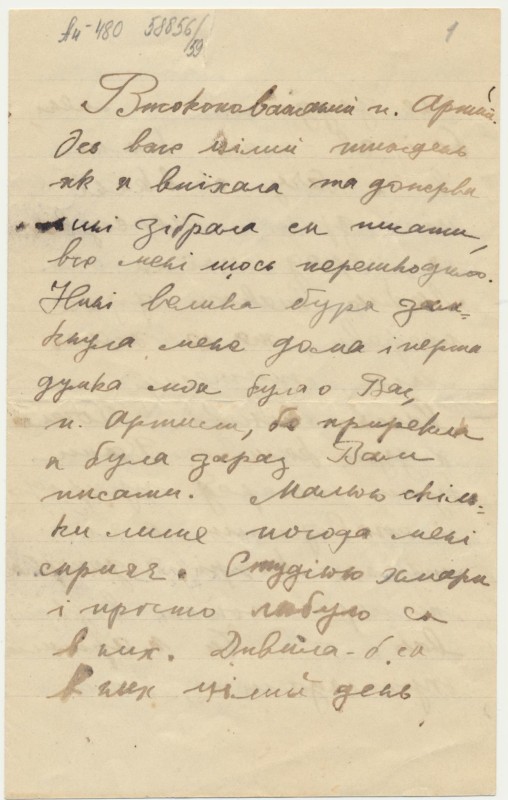 Ан-480 58856/59
1
Високоповажаний п. Артист.
Ось вже цілий тиждень
як я виїхала та доперва
нині зібрала ся писати,
все мені щось перешкодило.
Нині велика буря зам=
кнула мене дома і перша
думка моя була о Вас,
п. Артист, бо прирекла
я була зараз Вам
писати. Малюю скіль=
ки лише погода мені
сприяє. Студіюю хмари
і просто любую ся
в них. Дивила-б ся
в них цілий день